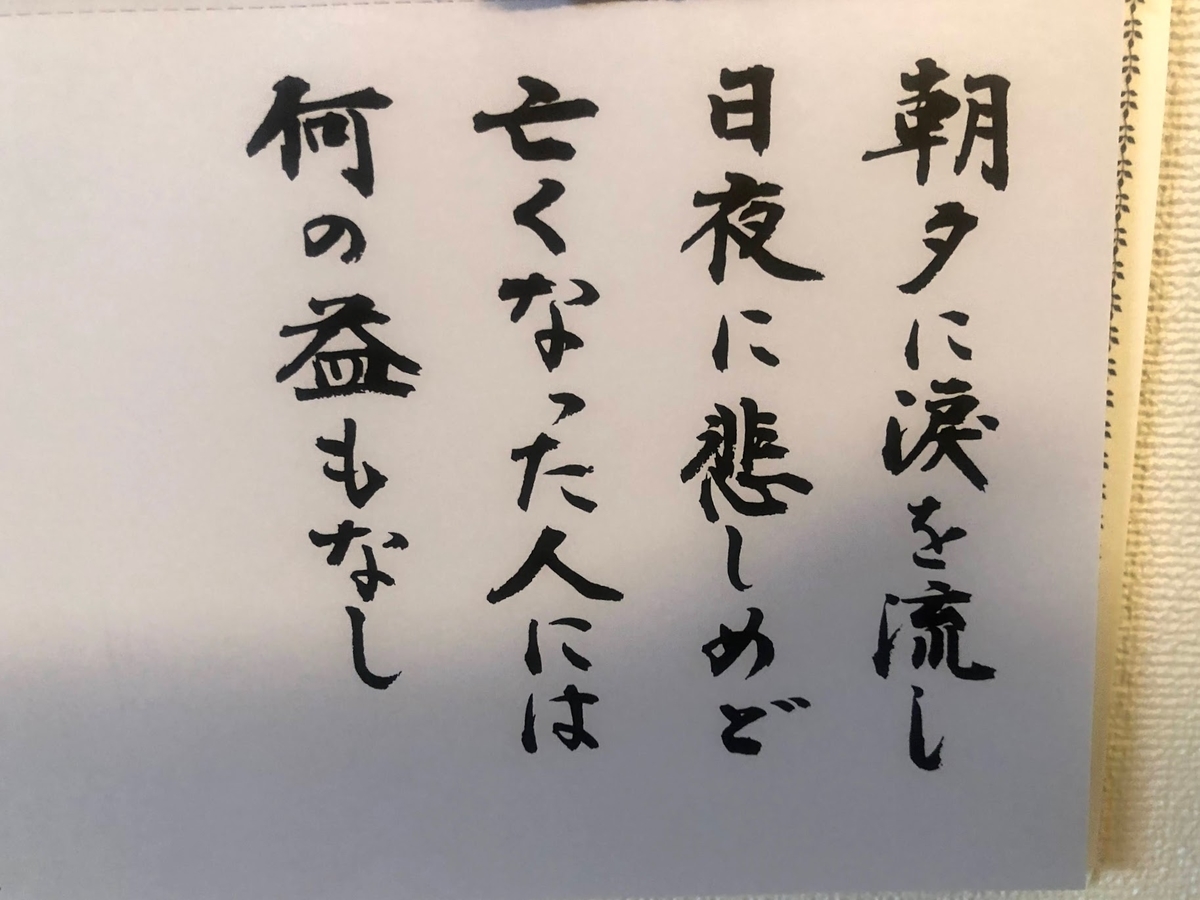 朝夕に涙を流し
日夜に悲しめど
亡くなった人には
何の益もなし